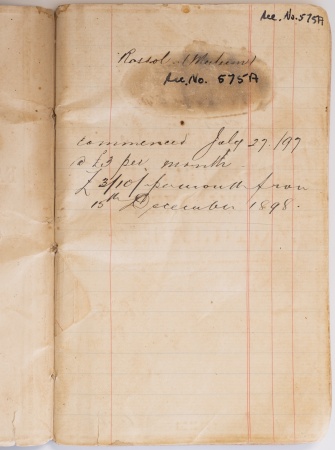 Acc. No. 575A
Rassol
Acc. No. 575A
commenced July 27/97
@ £3 per month
£3/10/- per month from
15th December 1898.